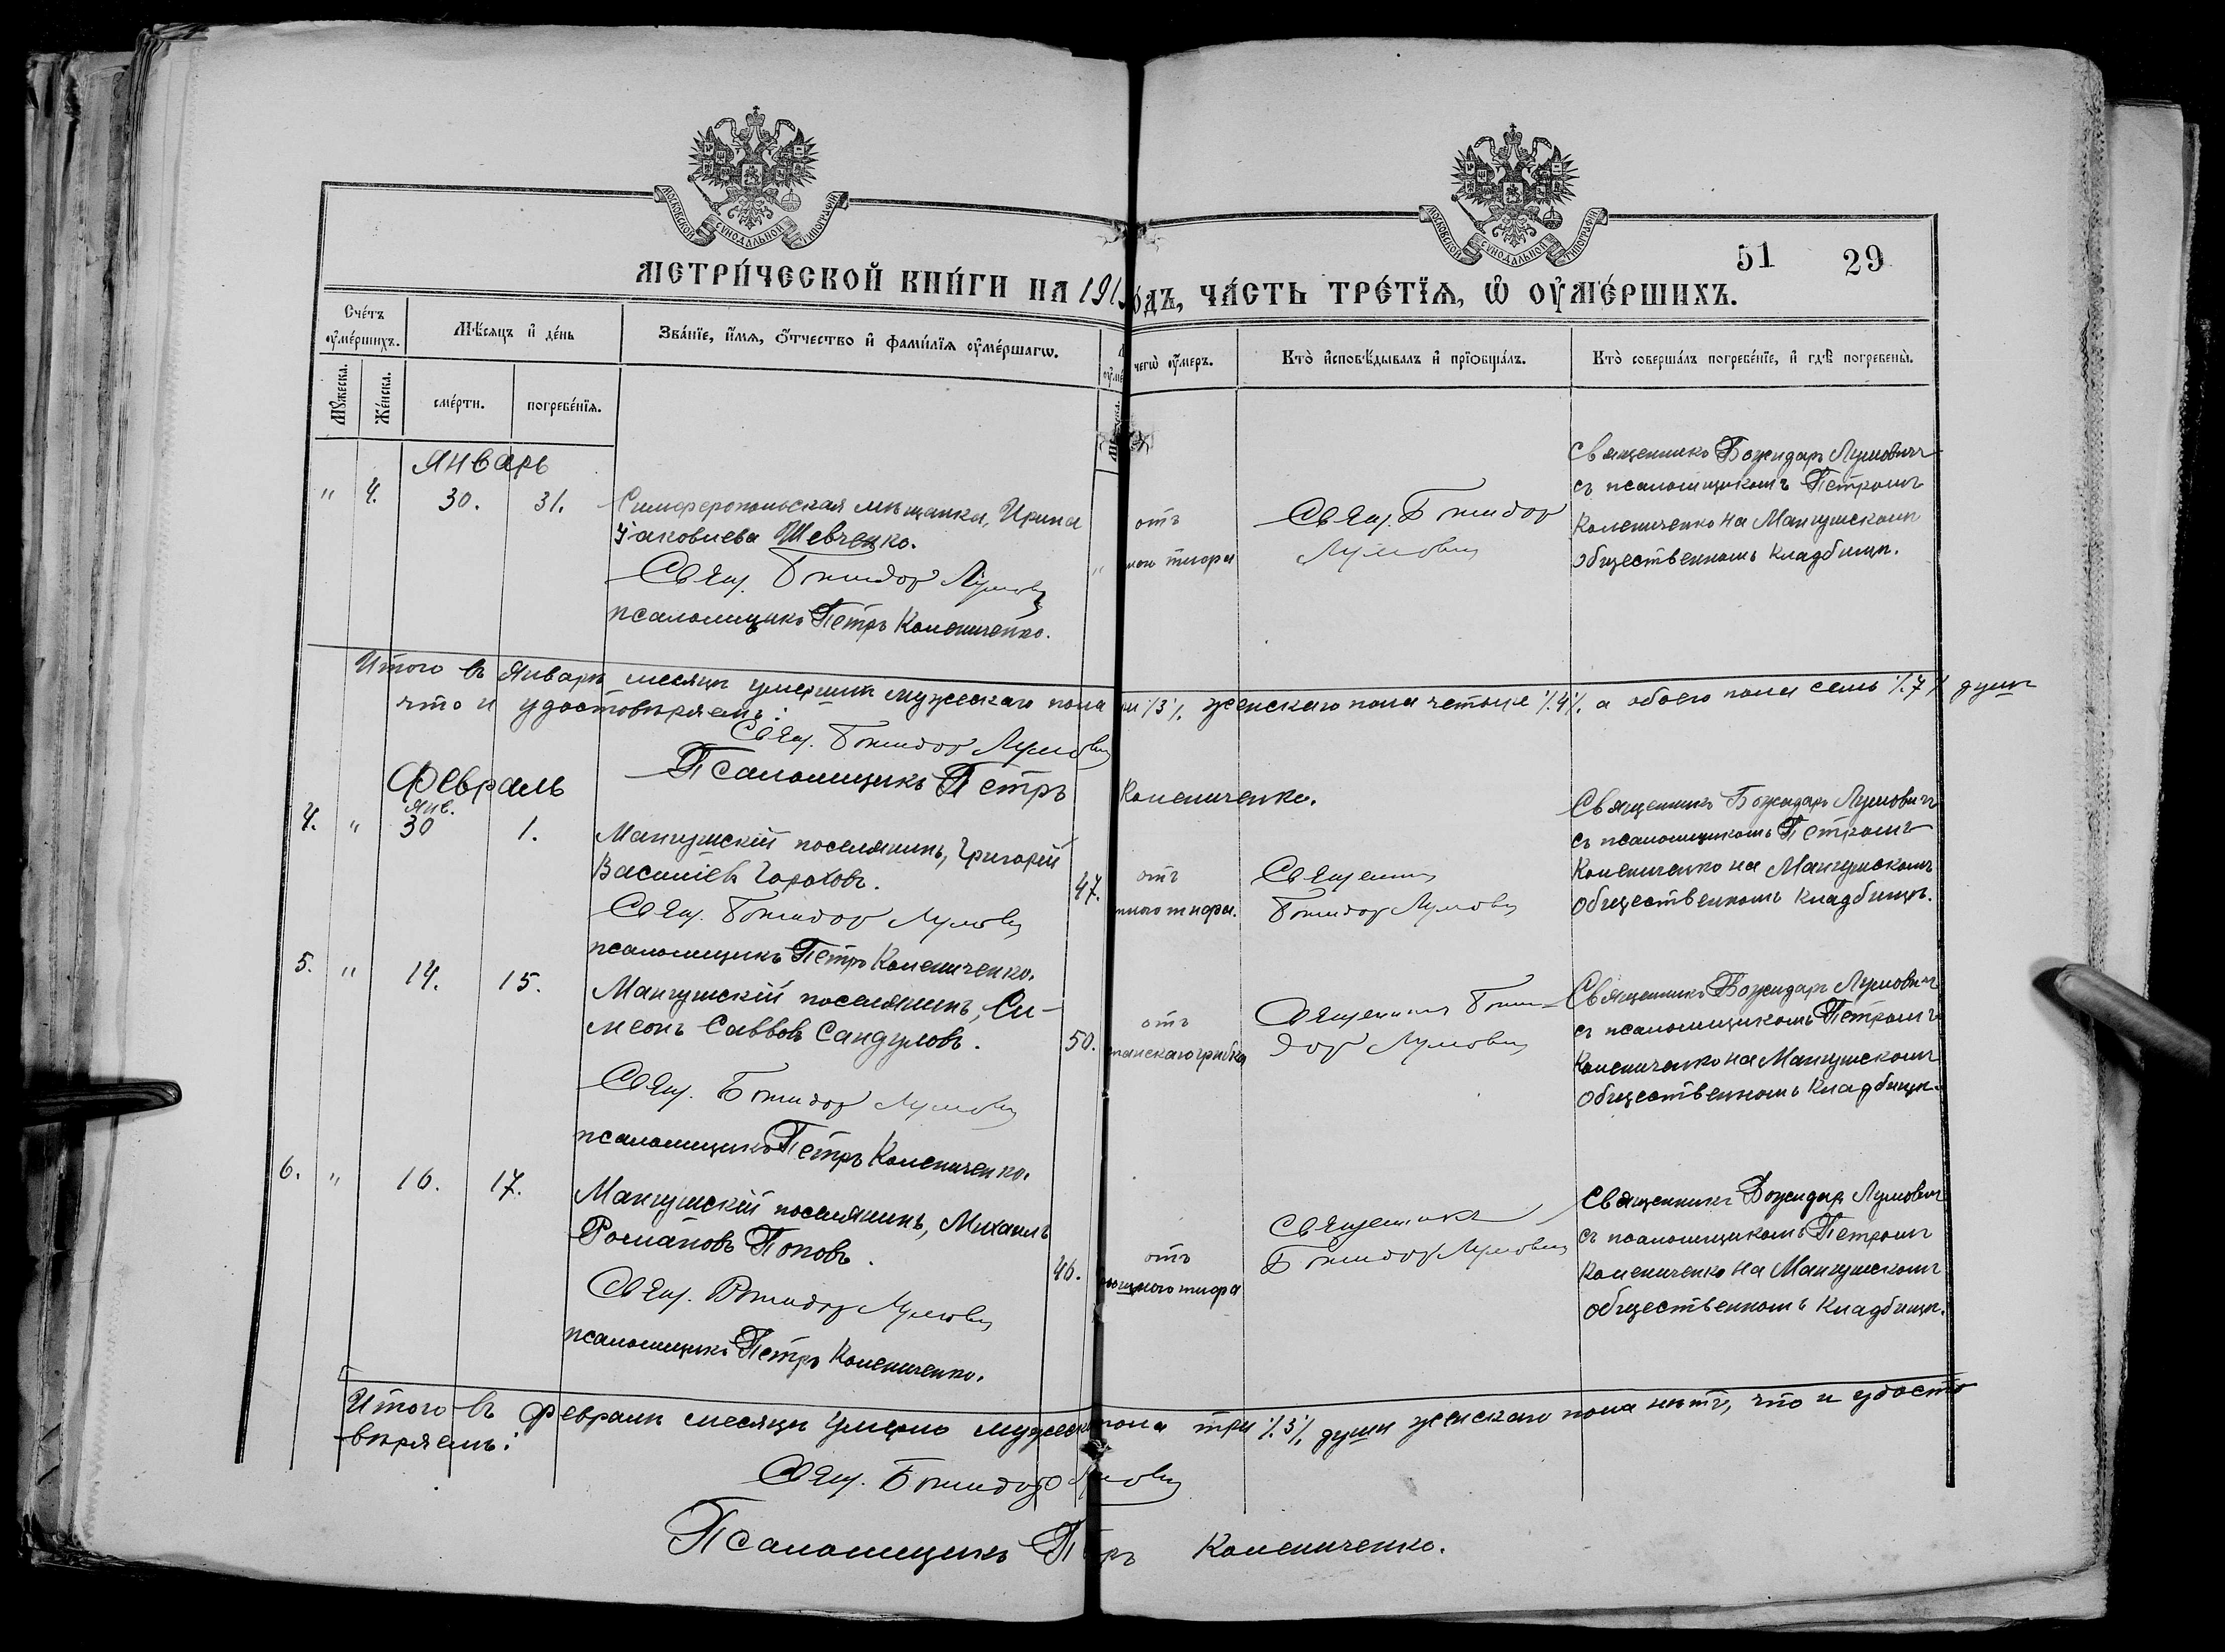 МОСКОВСКОЙ СѴНОДАЛЬНОЙ ТИПОГРАФІИ
МОСКОВСКОЙ СѴНОДАЛЬНОЙ ТИПОГРАФІИ
51 29
МЕТРИ́ЧЕСКОЙ КНИ́ГИ НА 191
о́дъ, ЧА́СТЬ ТРЕ́ТЇѦ, Ѡ҆ ОУ҆МЕ́РШИХЪ.
Сче́тъ оу҆ме́ршихъ.
Мѣ́сяцъ и҆ де́нь
Зва́нїе, и҆́мѧ, ѻ҆́тчество и҆ фами́лїѧ оу҆ме́ршагѡ.
чегѡ̀ оу҆́меръ.
Кто̀ и҆сповѣ́дывалъ и҆ прїѡбща́лъ.
Кто̀ соверша́лъ погребе́нїе, и҆ гдѣ̀ погребены̀.
Мꙋ́жеска.
Же́нска.
сме́рти.
погребе́нїѧ.
Январь
" 4. 30. 31.
Симферопольская мѣщанка, Ирина
Іаковлева Шевченко.
Свящ. Божидар Лумович
псаломщикъ Петръ Колениченко.
"
отъ
Свящ. Божидар
Лумович
Священникъ Божидаръ Лумовичъ
съ псаломщикомъ Петромъ
Колениченко на Мангушскомъ
общественномъ кладбищѣ.
Итого въ Январѣ месяцѣ умерших мужескаго пола
ри /.3/. женскаго пола четыре /.4/. а обоего пола семь /.7/. душъ
что и удостовѣряемъ:
Свящ. Божидар Лумович
Псаломщикъ Петръ Колениченко.
Февраль
Янв.
4. " 30 1.
Мангушскій поселянинъ, Григорій
Василіевъ Гороховъ.
Свящ. Божидар Лумович
псаломщикъ Петръ Колениченко.
47.
отъ
Священник
Божидар Лумович
Священникъ Божидаръ Лумовичъ
съ псаломщикомъ Петромъ
Колениченко на Мангушскомъ
общественномъ кладбищѣ.
5. " 14. 15.
Мангушскій поселянинъ, Си-
меонъ Саввовъ Сандуловъ.
Свящ. Божидар Лумович
псаломщикъ Петръ Колениченко.
50.
отъ
Священникъ Божи-
дар Лумович
Священникъ Божидаръ Лумовичъ
съ псаломщикомъ Петромъ
Колениченко на Мангушскомъ
общественномъ кладбищѣ.
6. " 16. 17.
Мангушскій поселянинъ, Михаилъ
Романовъ Поповъ.
Свящ. Божидар Лумович
псаломщикъ Петръ Колениченко.
46.
отъ
Священникъ
Божидар Лумович
Священникъ Божидаръ Лумовичъ
съ псаломщикомъ Петромъ
Колениченко на Мангушскомъ
общественномъ кладбищѣ.
Итого въ Февралѣ месяцѣ умерло мужеск пола три /.3/. души женскаго пола нѣтъ, что и удосто
вѣряемъ:
Свящ. Божидар Лумович
Псаломщикъ Петръ Колениченко.